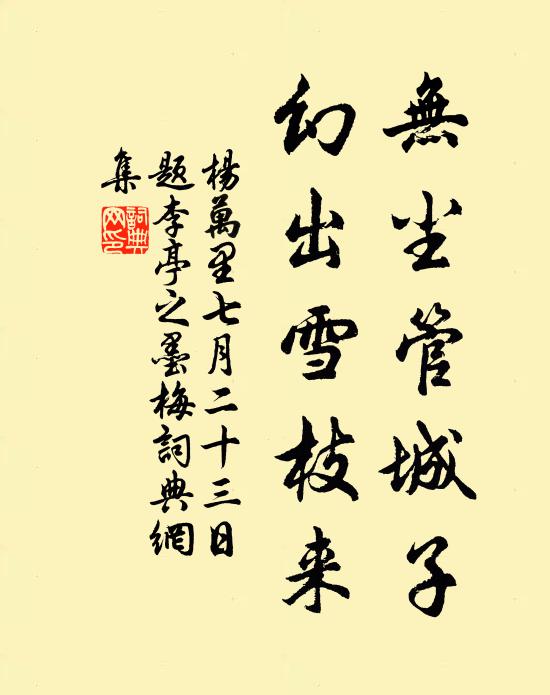 無尘管城子
幻出雪枝来
楊萬里七月二十三日
題李亭之墨梅詞典網
集
詞典
网印